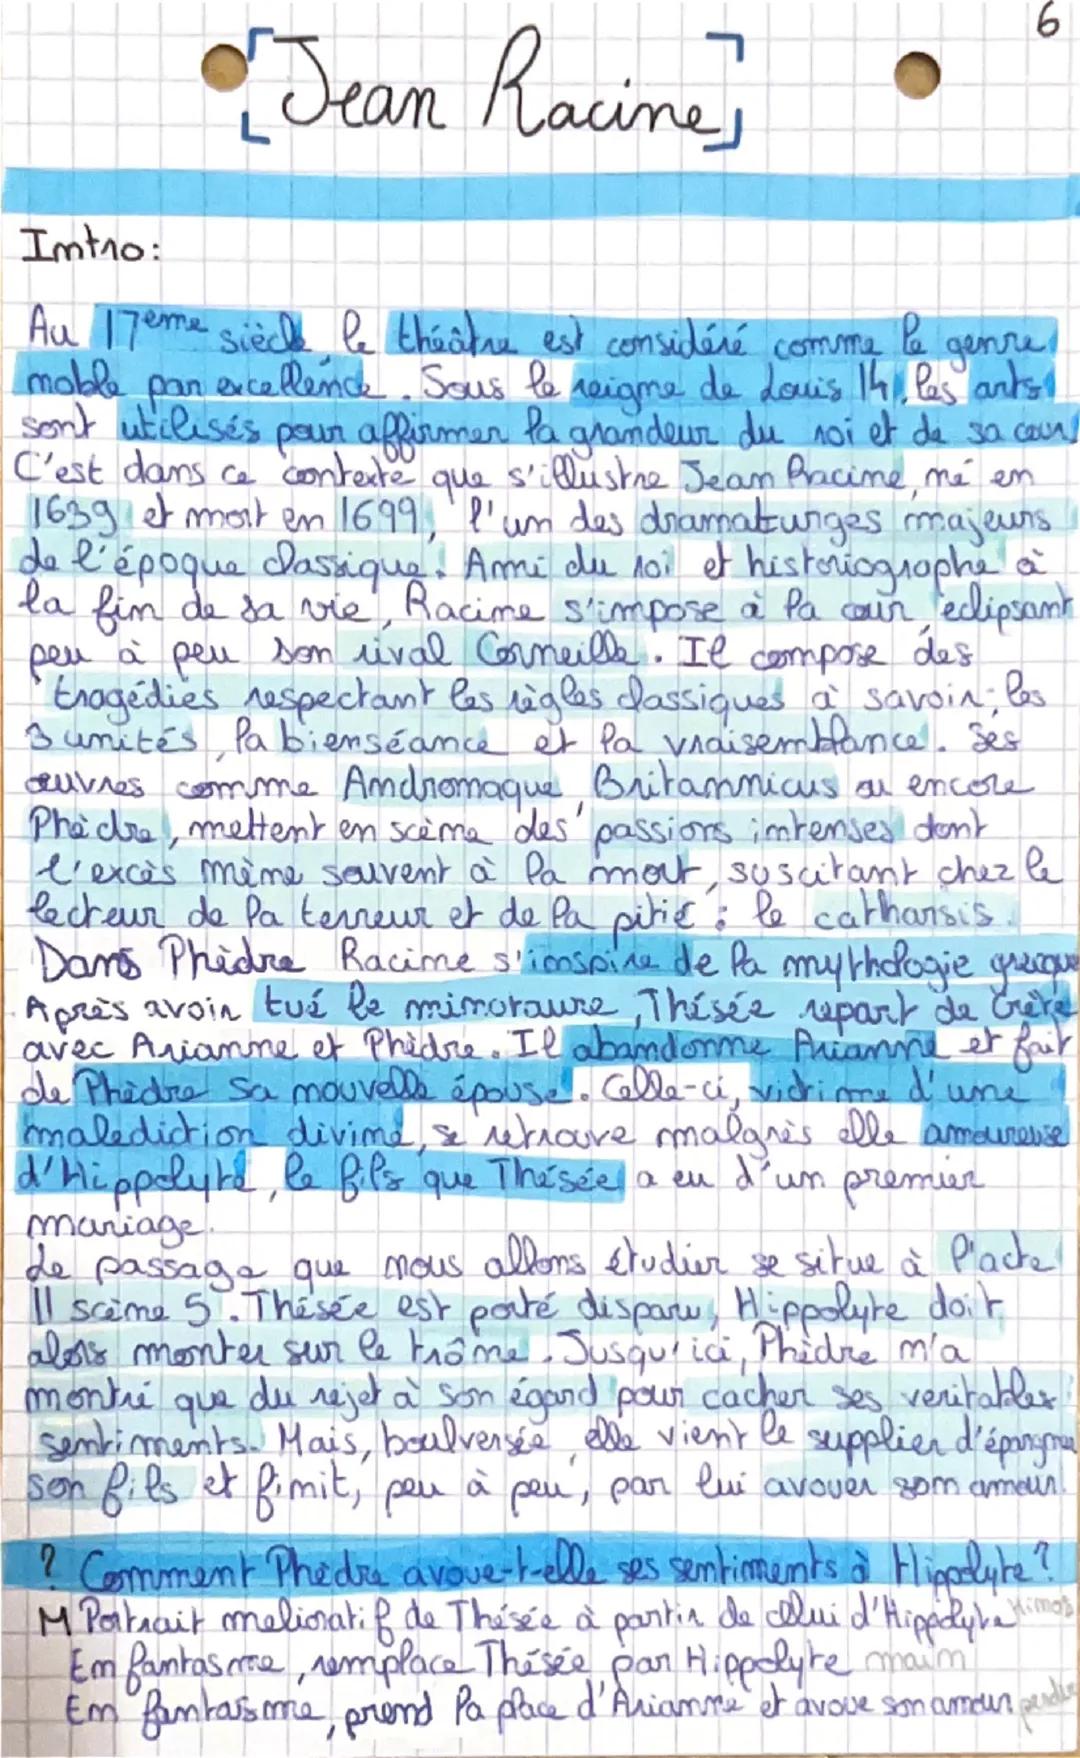 6
Jean Racine
Intro:
Au 17ème siècle le théâtre est considéré comme le genre
noble par excellence. Sous le reigne de Louis 14, les arts
sont utilisés pour affirmer la grandeur du roi et de sa cour
C'est dans ce contexte que s'illustre Jean Racine, né en
1639 et mort en 1699, l'un des dramaturges majeurs
de l'époque classique. Ami du roi et historiographe à
la fin de sa vie, Racine s'impose à la cour, eclipsant
peu à peu son rival Corneille. Il compose des
tragédies respectant les règles classiques à savoir; les
3 unités, la bienséance et la vraisemblance. Ses
œuvres comme Andromaque, Britannicus ou encore
Phèdre, mettent en scène des passions intenses dont
l'excès mène souvent à la mort, suscitant chez le
lecteur de la terreur et de la pitié : le catharsis.
Dans Phèdre Racine s'inspire de la mythologie grecque
Après avoir tué le minotaure, Thésée repart de Crète
avec Arianne et Phèdre. Il abandonne Arianne et fait
de Phèdre sa nouvelle épouse. Celle-ci, victime d'une
malediction divine, se retrouve malgrès elle amoureuse
d'Hippolyte, le fils que Thésée a eu d'un premier
mariage.
Le passage que nous allons étudier se situe à l'acte
II scène 5. Thésée est porté disparu, Hippolyte doit
alors monter sur le trône. Jusqu'ici, Phèdre n'a
montré que du rejet à son égard pour cacher ses veritables
sentiments. Mais, boulversée, elle vient le supplier d'épargner
son fils et finit, peu à peu, par lui avouer son amour.
? Comment Phèdre avoue-t-elle ses sentiments à Hippolyte ?
M Portrait melioratif de Thésée à partir de celui d'Hippolyte
En fantasme, remplace Thésée par Hippolyte main
En fantasme, prend la place d'Arianne et avoue son amour perdre